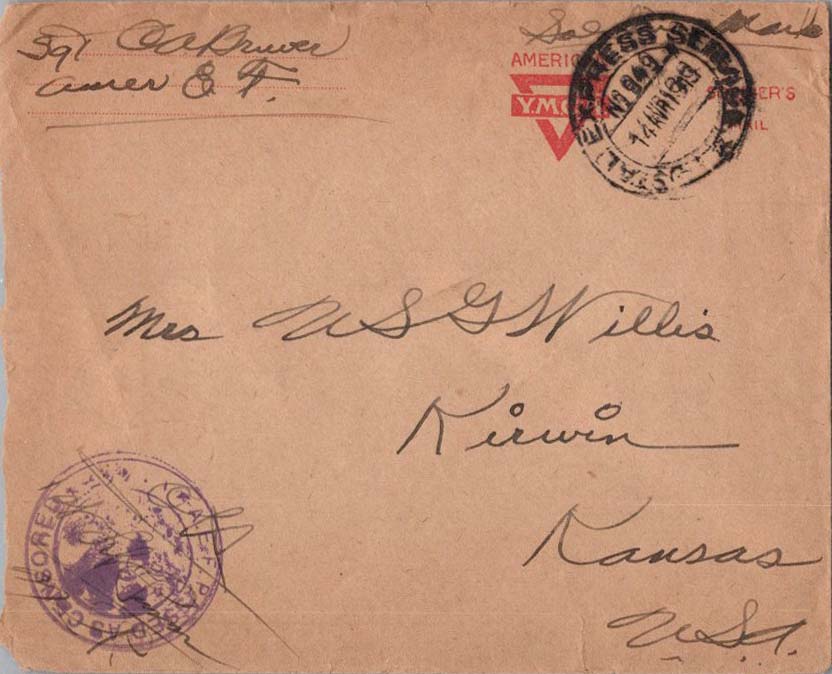 Sgt C A Bruver
Amer E. F.
Soldiers Mail
AMERIC
Y.M.C.A
SOLDIER'S
MAIL
POSTAL EXPRESS SERVICE
No 949
14 AVR 1919
Mrs U S G Willis
Kirwin
Kansas
U.S.A.
A.E.F. PASSED AS CENSORED